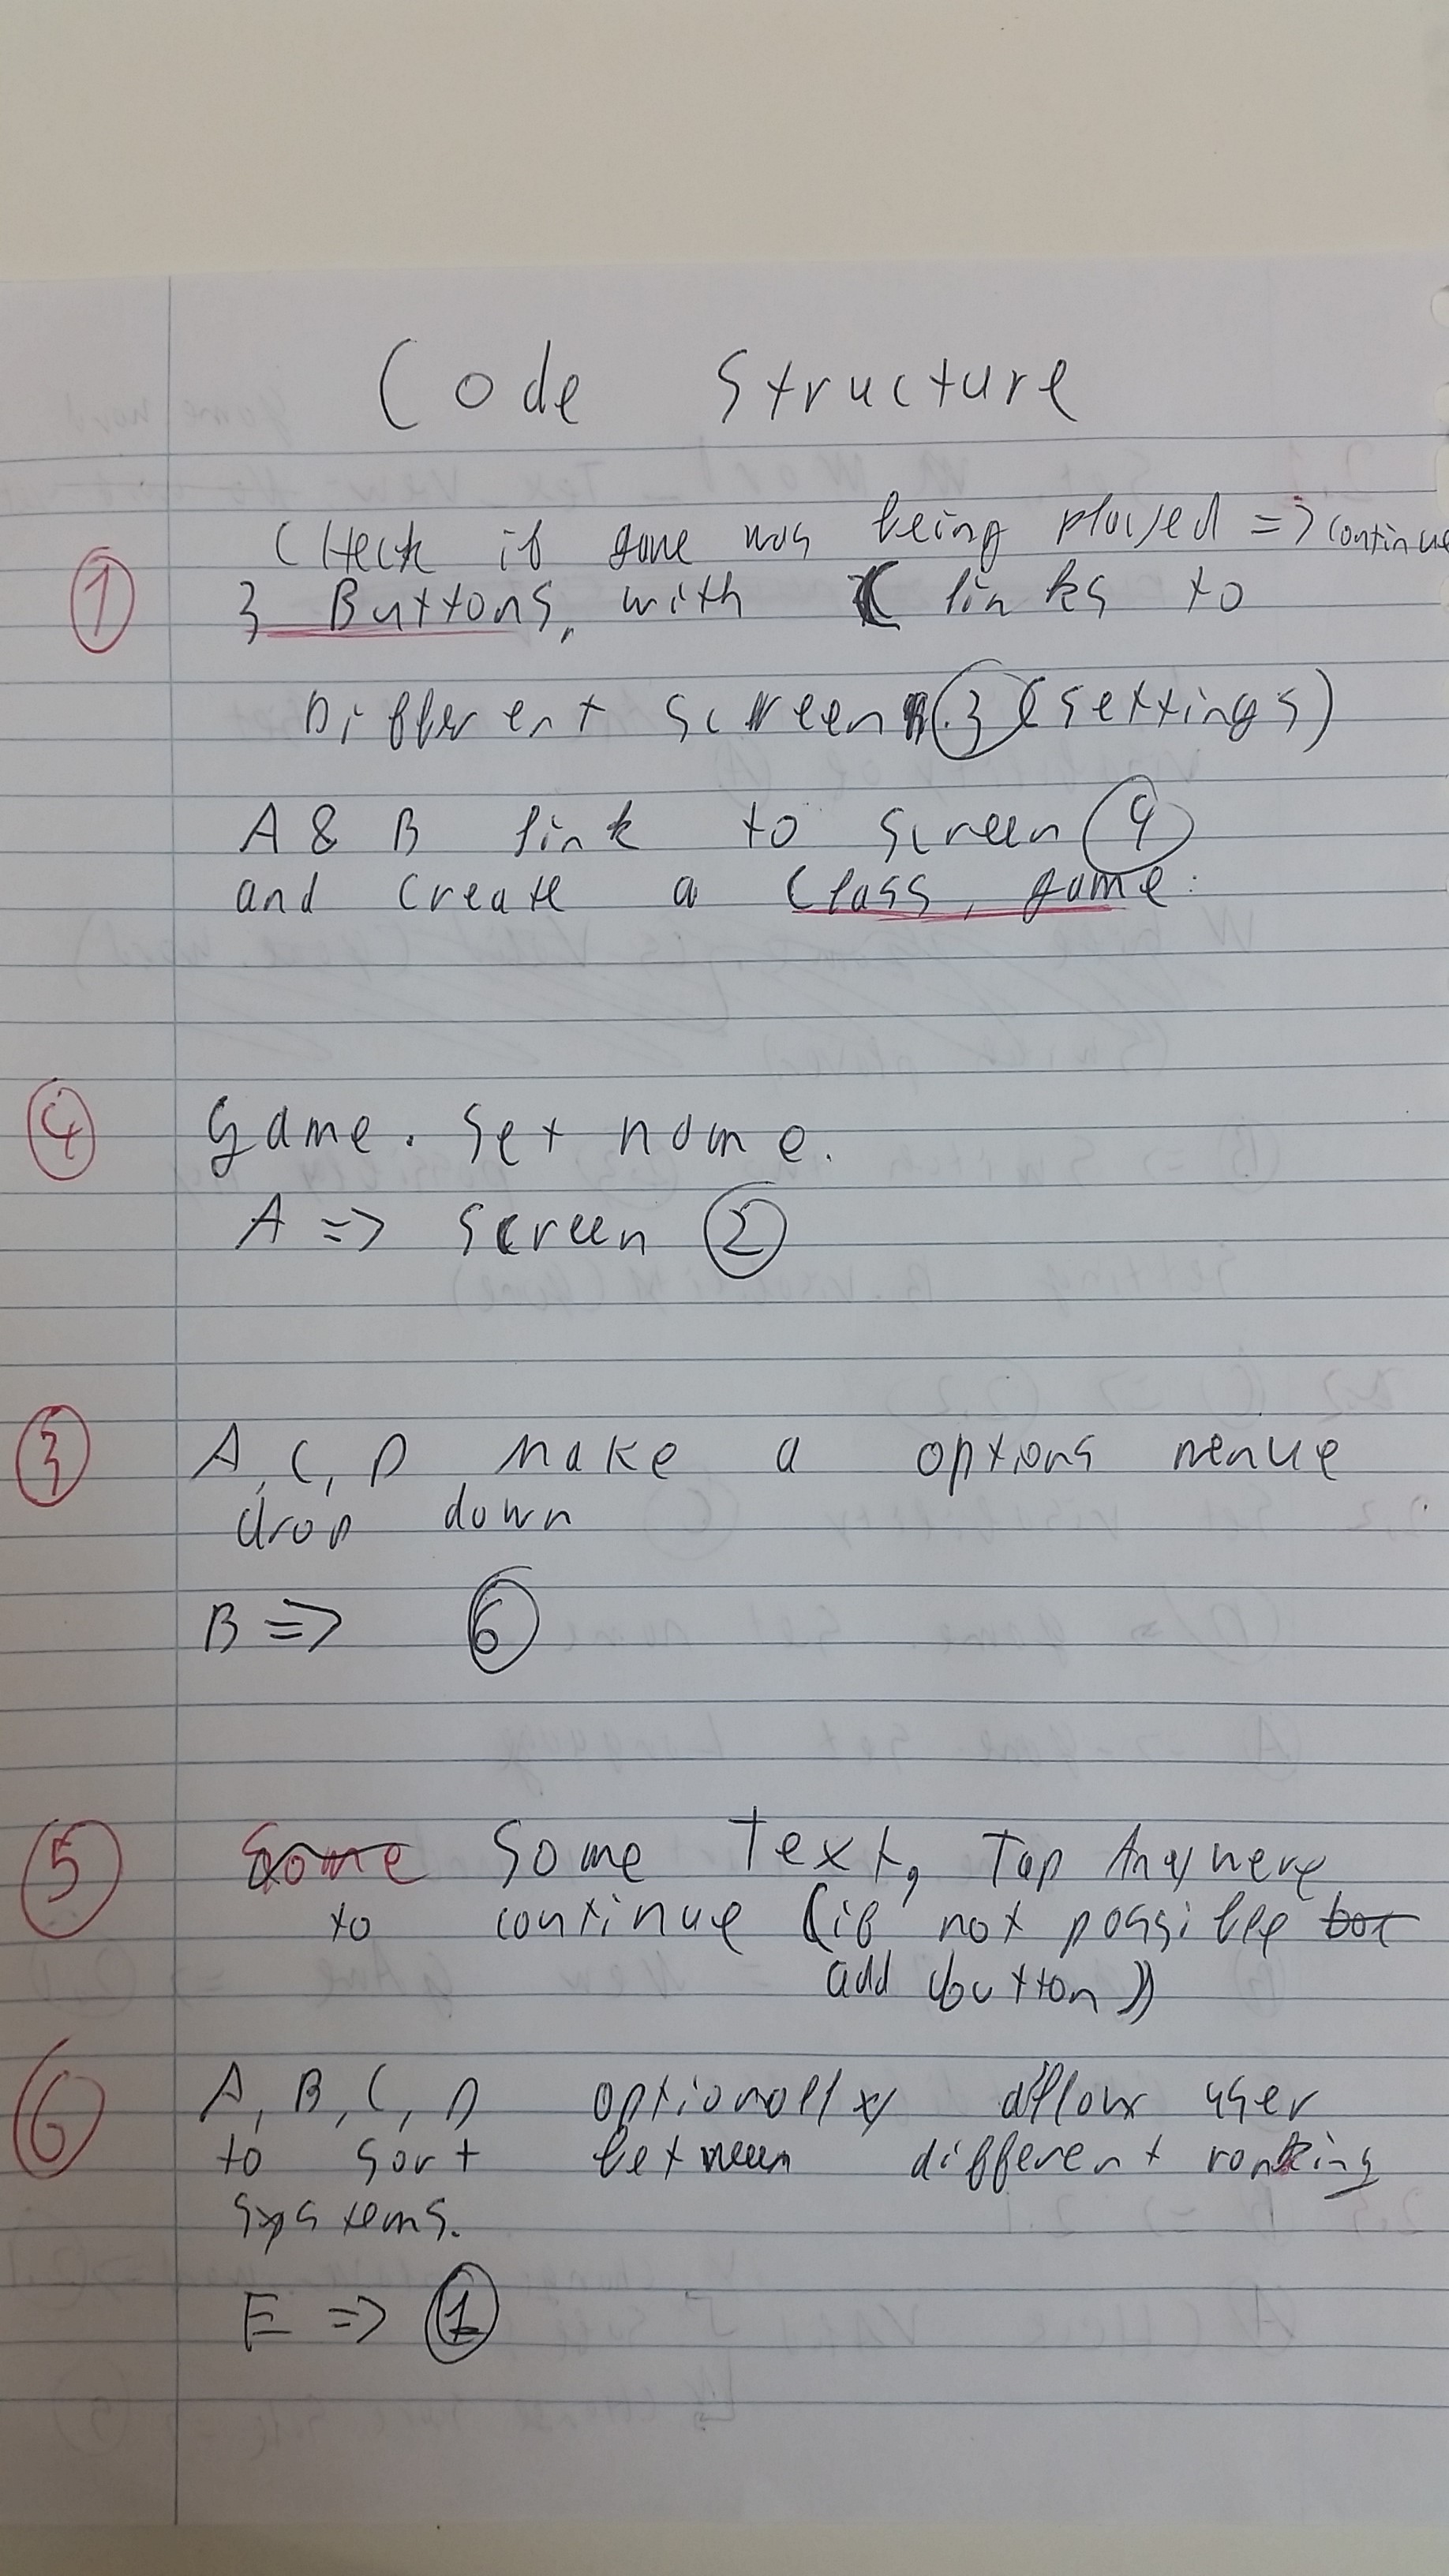 Code Structure
CHeck if game was being played => continue
① 3 Buttons, with C links to
Different screen ③ (settings)
A & B link to screen ④
and create a Class, game.
④ Game. Set name.
A => screen ②
③ A, C, D make a options menue
drop down
B => ⑥
⑤ Some Some Text, Tap Anywere
to continue (if not possible bot
add button)
⑥ A, B, C, D optionally allow user
to sort between different ranking
systems.
E => ①